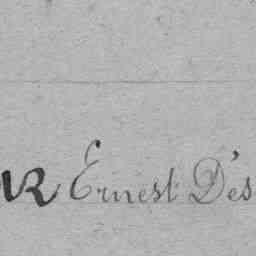 R Ernest Des